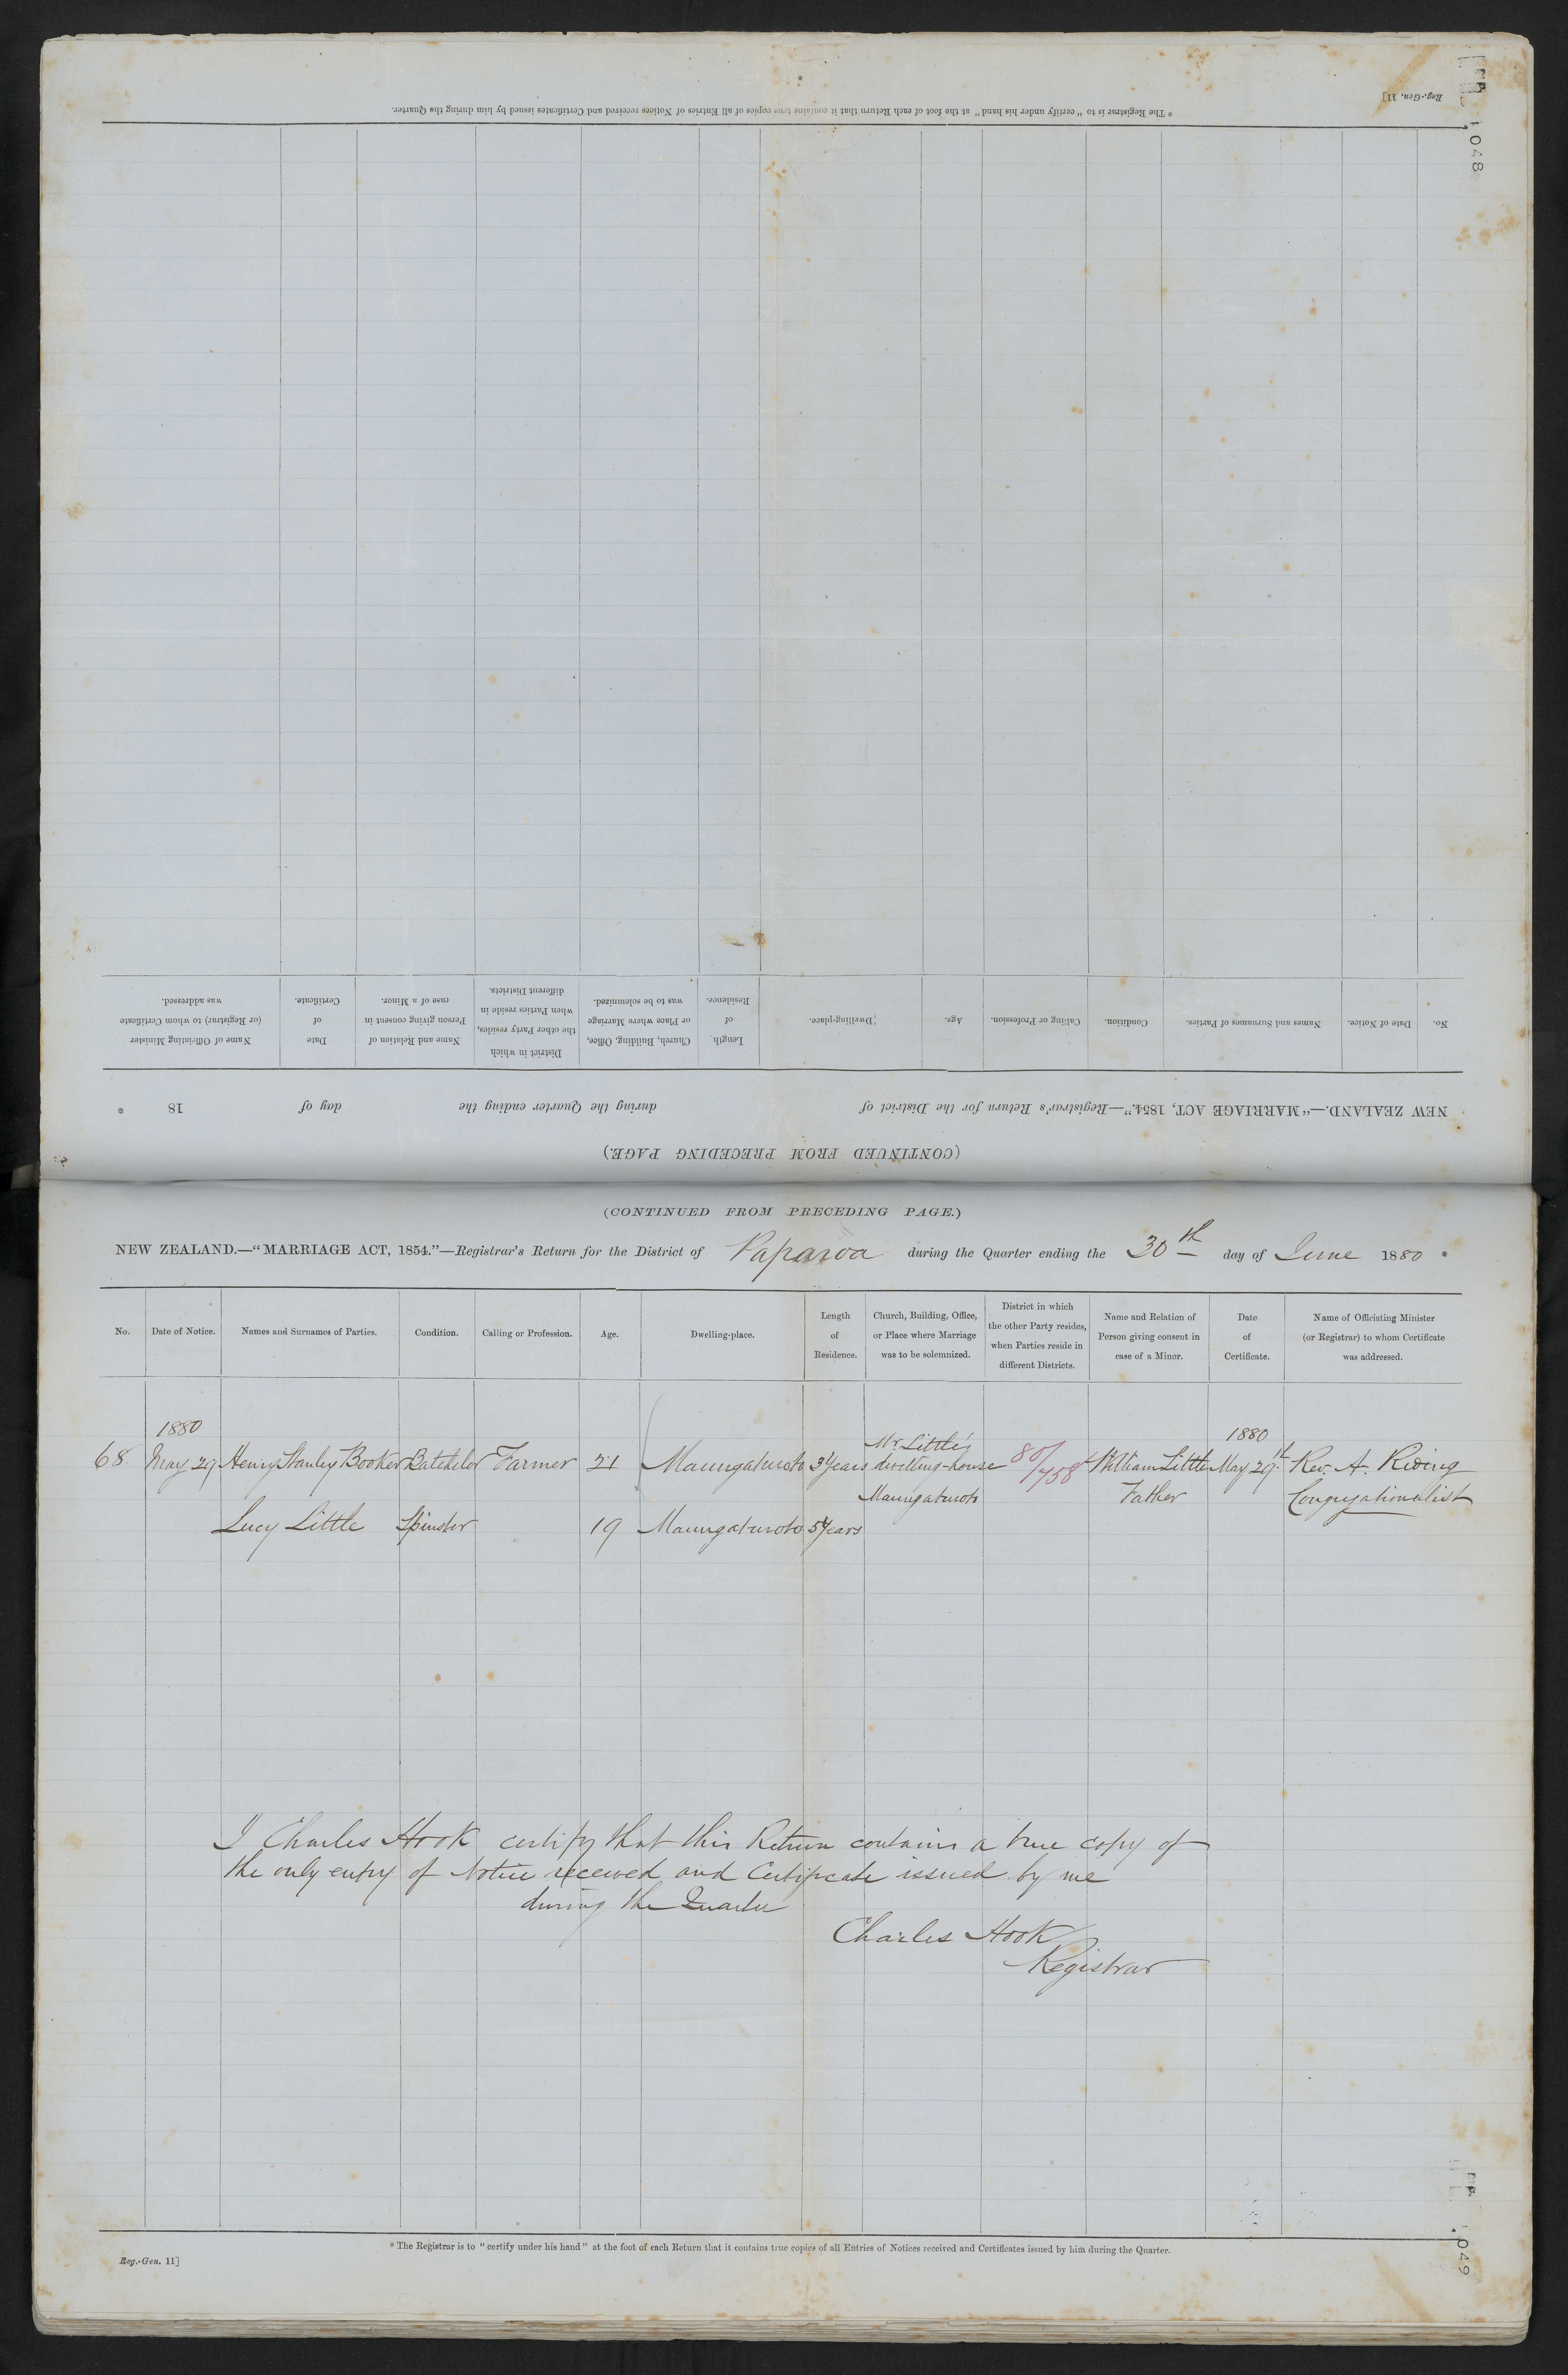 * The Registrar is to "certify under his hand" at the foot of each Return that it contains true copies of all Entries of Notices received and Certificates issued by him during the Quarter.
Reg.-Gen. 11]
1048
No.
Date of Notice.
Names and Surnames of Parties.
Condition.
Calling or Profession.
Age.
Dwelling-place.
Length
of
Residence.
Church, Building, Office,
or Place where Marriage
was to be solemnized.
District in which
the other Party resides,
when Parties reside in
different Districts.
Name and Relation of
Person giving consent in
case of a Minor.
Date
of
Certificate.
Name of Officiating Minister
(or Registrar) to whom Certificate
was addressed.
NEW ZEALAND.—"MARRIAGE ACT, 1854."—Registrar's Return for the District of during the Quarter ending the day of 18 *
(CONTINUED FROM PRECEDING PAGE.)
(CONTINUED FROM PRECEDING PAGE.)
NEW ZEALAND.—"MARRIAGE ACT, 1854."—Registrar's Return for the District of Paparoa during the Quarter ending the 30th day of June 1880 *
No.
Date of Notice.
Names and Surnames of Parties.
Condition.
Calling or Profession.
Age.
Dwelling-place.
Length
of
Residence.
Church, Building, Office,
or Place where Marriage
was to be solemnized.
District in which
the other Party resides,
when Parties reside in
different Districts.
Name and Relation of
Person giving consent in
case of a Minor.
Date
of
Certificate.
Name of Officiating Minister
(or Registrar) to whom Certificate
was addressed.
1880 1880
68 May 29 Henry Stanley Booker Batchelor Farmer 21 Maungaturoto 3 years Mr Little's dwelling-house 80/758 William Little May 29th Rev. A. Riding
Maungaturoto Father Congregationalist
Lucy Little Spinster 19 Maungaturoto 5 years
I Charles Hook certify that this Return contains a true copy of
the only entry of Notice received and Certificate issued by me
during the Quarter
Charles Hook
Registrar
* The Registrar is to "certify under his hand" at the foot of each Return that it contains true copies of all Entries of Notices received and Certificates issued by him during the Quarter.
Reg.-Gen. 11]
1049